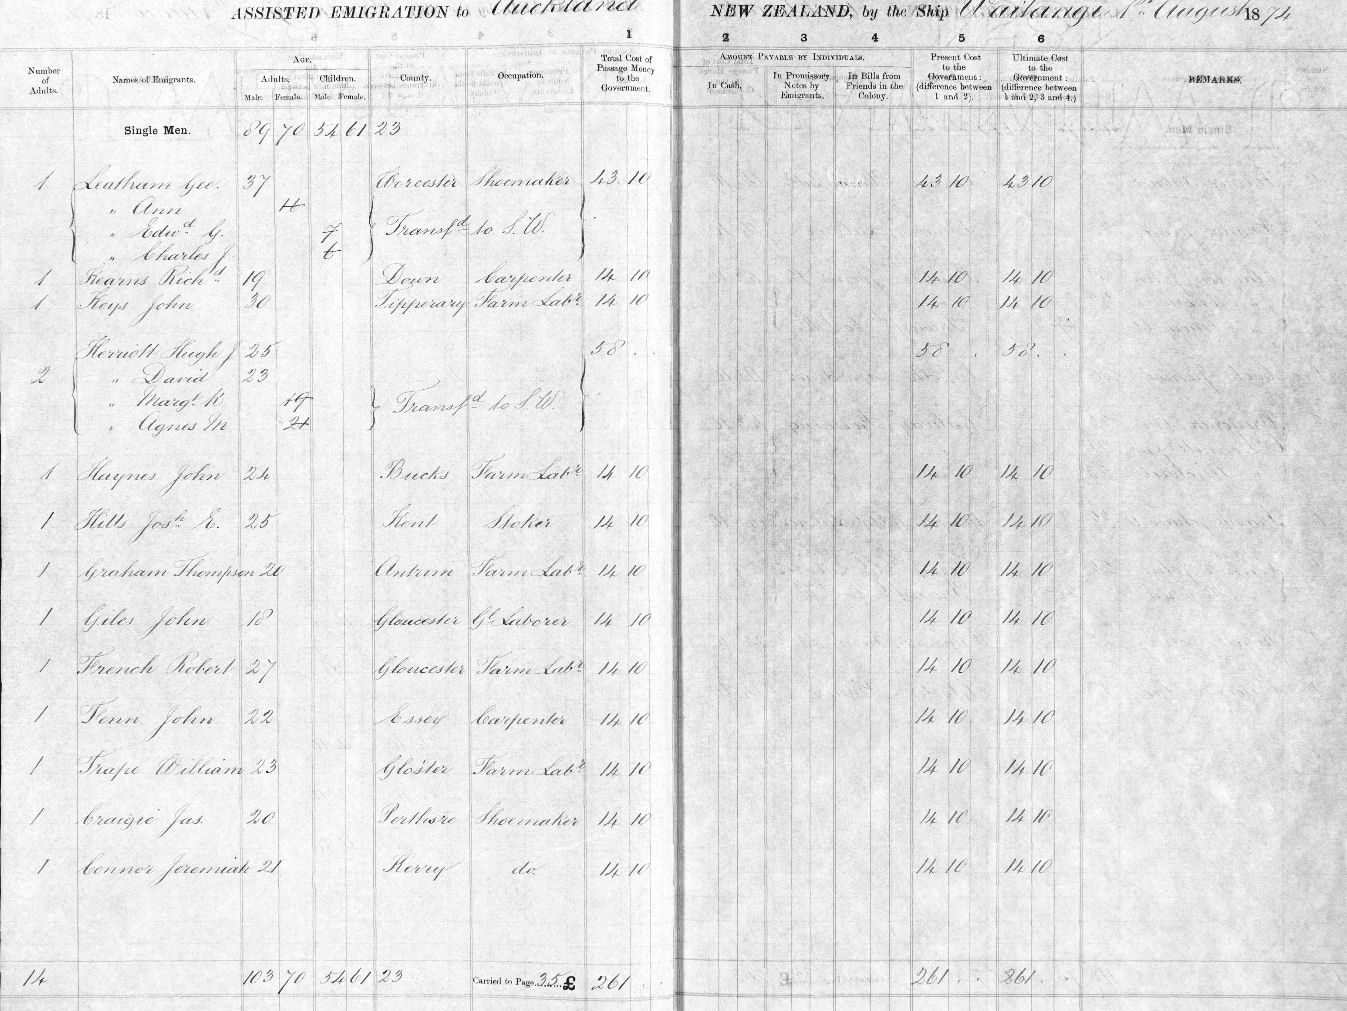 ASSISTED EMIGRATION to Auckland NEW ZEALAND, by the Ship Waitangi 1st August 1874
1 2 3 4 5 6
Number of Adults. Names of Emigrants. Age. County. Occupation. Total Cost of Passage Money to the Government. Amount Payable by Individuals. Present Cost to the Government: (difference between 1 and 2). Ultimate Cost to the Government: (difference between 1 and 2, 3 and 4.) REMARKS.
Adults. Children. In Cash. In Promissory Notes by Emigrants. In Bills from Friends in the Colony.
Male. Female. Male. Female.
Single Men. 89 70 54 61 23
1 Leatham Geo. 37 Worcester Shoemaker 43 10 43 10 43 10
" Ann
" Edwd G. 7 Transfd to S.W.
" Charles J 6
1 Kearns Richd 19 Down Carpenter 14 10 14 10 14 10
1 Keys John 30 Tipperary Farm Labr 14 10 14 10 14 10
Herriott Hugh J 25 58 58 58
2 " David 23
" Margt K 19 Transfd to S.W.
" Agnes M 21
1 Haynes John 24 Bucks Farm Labr 14 10 14 10 14 10
1 Hills Josh E. 25 Kent Stoker 14 10 14 10 14 10
1 Graham Thompson 20 Antrim Farm Labr 14 10 14 10 14 10
1 Giles John 18 Gloucester Gl Laborer 14 10 14 10 14 10
1 French Robert 27 Gloucester Farm Labr 14 10 14 10 14 10
1 Fenn John 22 Essex Carpenter 14 10 14 10 14 10
1 Trape William 23 Glo'ster Farm Labr 14 10 14 10 14 10
1 Craigie Jas. 20 Perthsre Shoemaker 14 10 14 10 14 10
1 Connor Jeremiah 21 Kerry do. 14 10 14 10 14 10
14 103 70 54 61 23 Carried to Page 35 £ 261 261 261